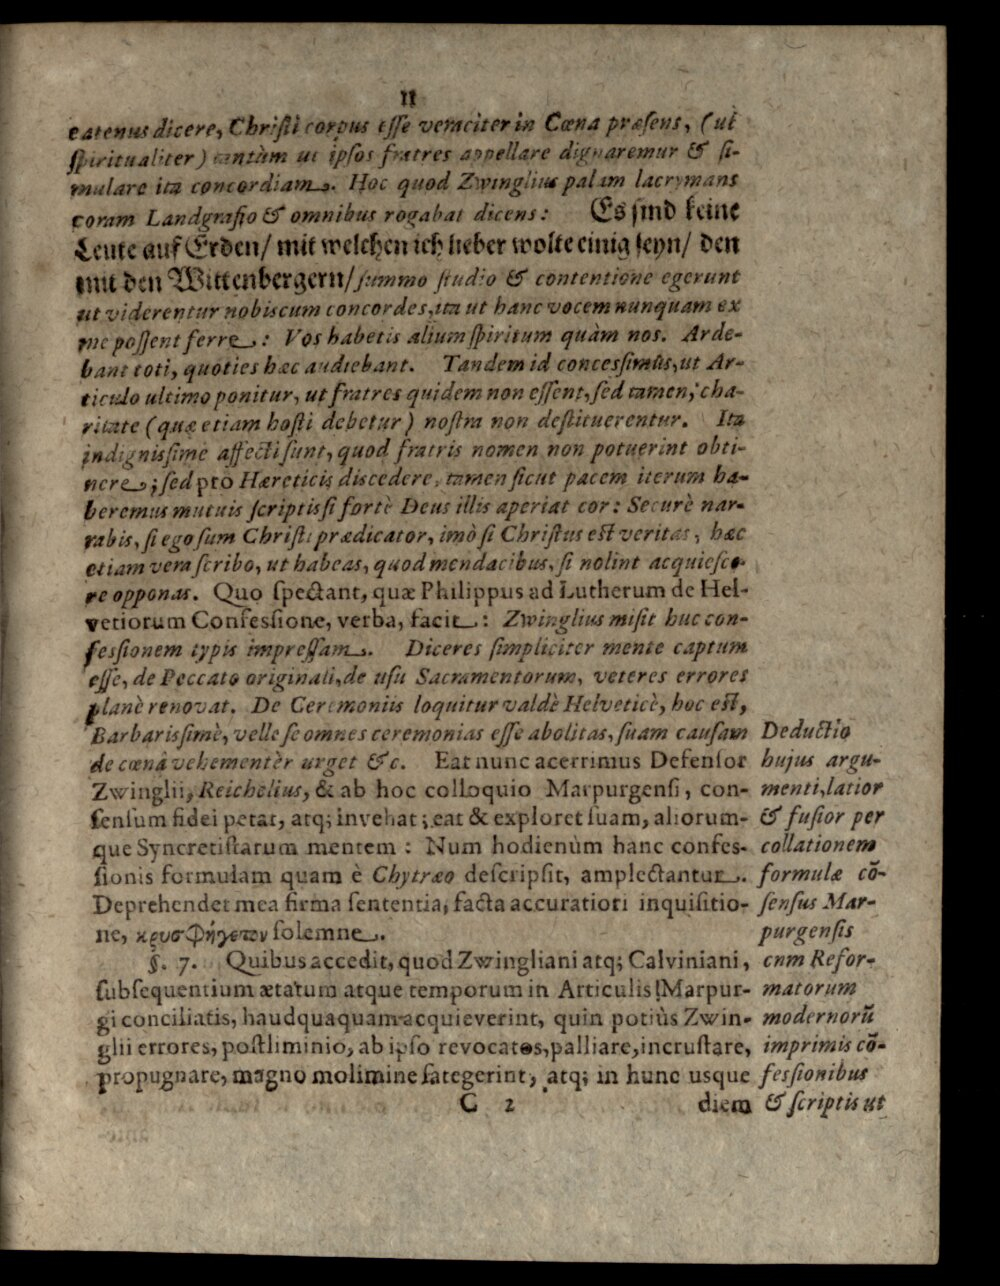 11
eatenus dicere, Christi corpus esse veraciter in Cœna præsens, (ut
spiritualiter) tantùm ut ipsos fratres appellare dignaremur & si-
mulare ita concordiam. Hoc quod Zwinglius palàm lacrymans
coram Landgrafio & omnibus rogabat dicens: Es sind keine
Leute auf Erden/ mit welchen ich lieber wolte einig seyn/ den
mit den Wittenbergern/ summo studio & contentione egerunt
ut viderentur nobiscum concordes, ita ut hanc vocem nunquam ex
me possent ferre: Vos habetis alium spiritum quàm nos. Arde-
bant toti, quoties hæc audiebant. Tandem id concessimûs, ut Ar-
ticulo ultimo ponitur, ut fratres quidem non essent, sed tamen, cha-
ritate (quæ etiam hosti debetur) nostra non destituerentur. Ita
indignissime affecti sunt, quod fratris nomen non potuerint obti-
nere; sed pro Hæreticis discedere, tamen sicut pacem iterum ha-
beremus mutuis scriptis si fortè Deus illis aperiat cor: Securè nar-
rabis, si ego sum Christi prædicator, imò si Christus est veritas, hæc
etiam vera scribo, ut habeas, quod mendacibus, si nolint acquiesce-
re opponas. Quo spectant, quæ Philippus ad Lutherum de Hel-
vetiorum Confessione, verba, facit: Zwinglius misit huc con-
fessionem typis impressam. Diceres simpliciter mente captum
esse, de Peccato originali, de usu Sacramentorum, veteres errores
planè renovat. De Ceremoniis loquitur valdè Helveticè, hoc est,
Barbarissimè, velle se omnes ceremonias esse abolitas, suam causam
de cœnâ vehementèr urget &c. Eat nunc acerrimus Defensor
Zwinglii, Reichelius, & ab hoc colloquio Marpurgensi, con-
sensum fidei petat, atq; invehat; eat & exploret suam, aliorum-
que Syncretistarum mentem: Num hodienùm hanc confes-
sionis formulam quam è Chytræo descripsit, amplectantur.
Deprehendet mea firma sententia, facta accuratiori inquisitio-
ne, κρυσφήγετον solemne.
§. 7. Quibus accedit, quod Zwingliani atq; Calviniani,
subsequentium ætatum atque temporum in Articulis Marpur-
gi conciliatis, haudquaquam acquieverint, quin potiùs Zwin-
glii errores, postliminio, ab ipso revocatos, palliare, incrustare,
propugnare, magno molimine sategerint, atq; in hunc usque
C 2 diem
Deductio
hujus argu-
menti, latior
& fusior per
collationem
formulæ cõ-
sensus Mar-
purgensis
cum Refor-
matorum
modernorũ
imprimis cõ-
fessionibus
& scriptis ut